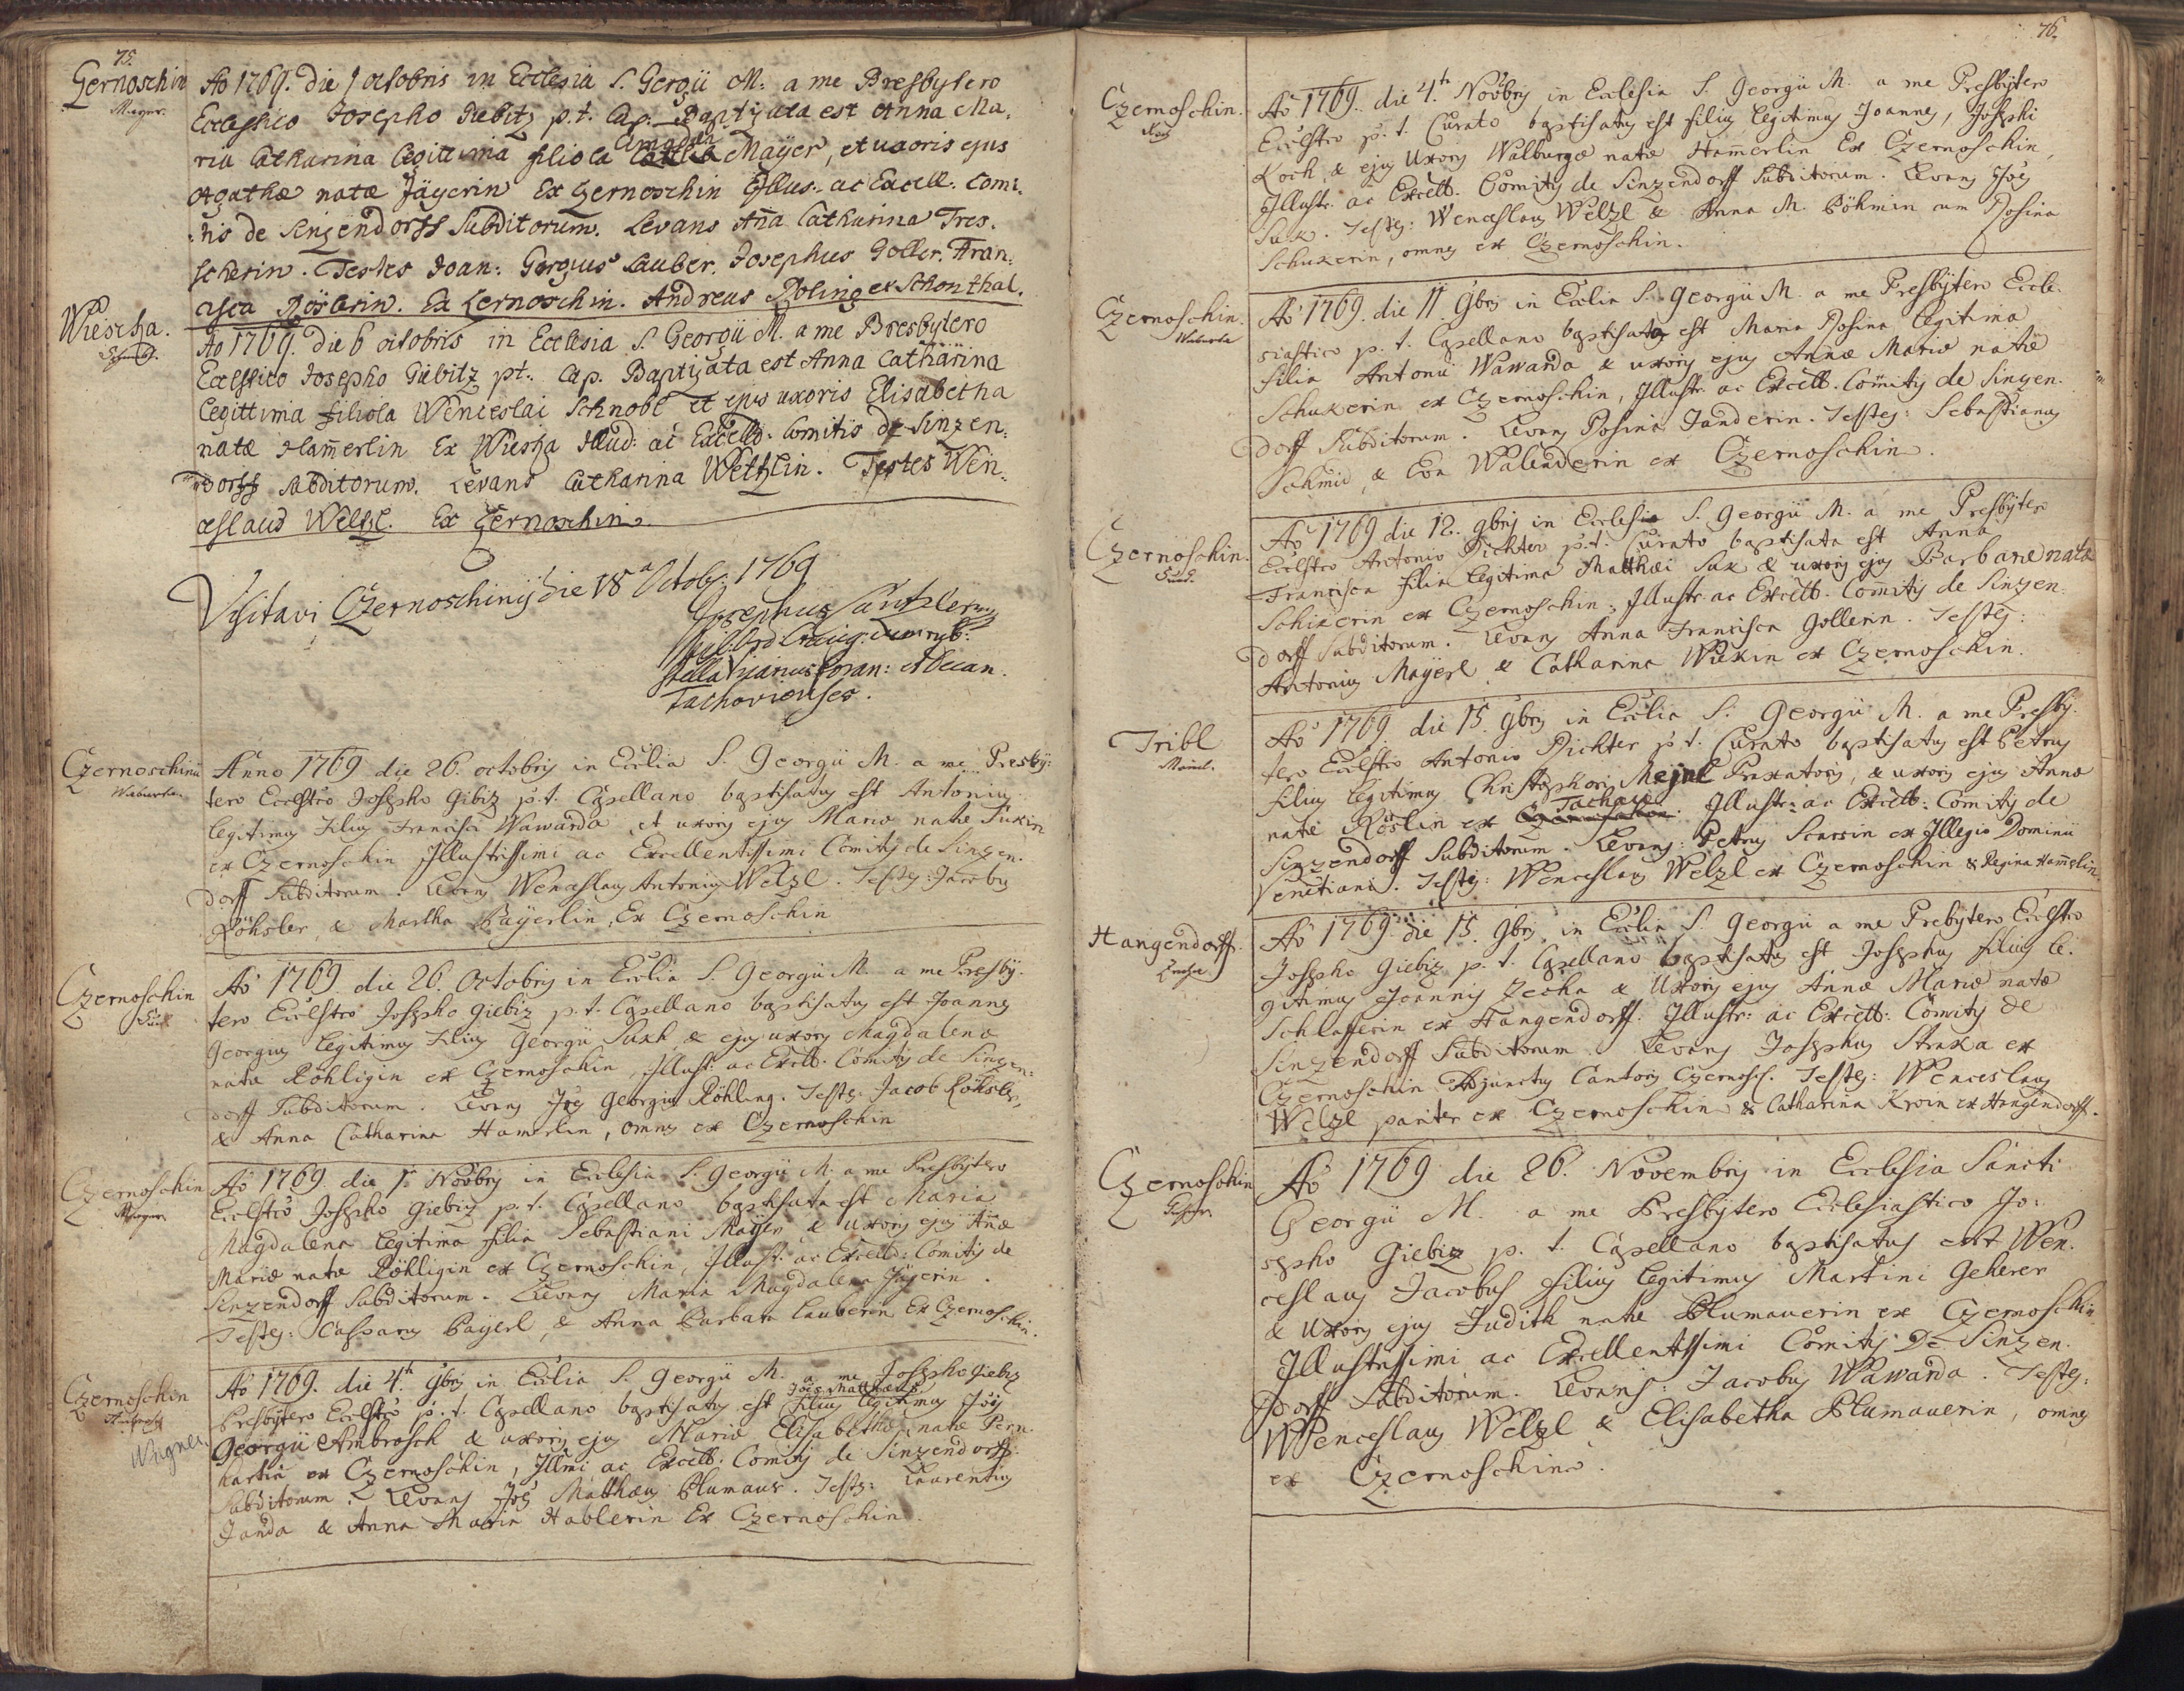 75.
Gernoschin
Mayer.
Ao 1769. die 1 octobris in Ecclesia S. Gergii M: a me Presbytero
Eccleshico Josepho Gubitz p.t. Cap. Baptizata est Anna Ma,
ria Catharina legittima filiola Mayer, et uxoris ejus
Agathæ natæ Jägerin Ex Zernoschin Illus: ac Excell. Comi,
:tis de Sinzendorff Subditorum. Levans Aña Catharina Tres,
scherin. Testes Joan: Gergius Lauber. Josephus Goller. Fran:
cisca Röslerin. Ex Zernoschin. Andreas Poling ex Schonthal.
Wiescha.
Ao 1769. die 6 octobris in Ecclesia S. Georgii M. a me Bresbytero
Ecclsstico Josepho Gübitz pt. Cap. Baptizata est Anna Catharina
legittima filiola Wenceslai Schnobl et ejus uxoris Elisabetha
natæ Ham̄erlin Ex Wiesha Illud: ac Excells. Comitis de Sinzen:
dorff Subditorum. Levans Catharina Wetzlin. Testes Wen:
ceslaus Welzl. Ex Zernoschin.
Visitavi Czernoschinij die 18a Octob: 1769
Josephus
Vicarius Foran: et Decan.
Tachoviensis.
Czernoschinii
Waburda.
Anno 1769 die 26. octobris in Ecclia S. Georgii M. a me Presby:
tero Ecclstico Josepho Gibiz p.t. Capellano baptisatus est Antonius
legitimus Filius Francisci Wawarda et uxoris ejus Mariæ natæ Suxin
ex Czernoschin Illustrissimi ac Excellentissimi Comitis de Sinzen.
dorff Subditorum. Levans Wenceslaus Antonius Welzl. Testes: Jacobus
Röhsler, & Martha Bayerlin, Ex Czernoschin
Czernoschin
Suck
Ao 1769. die 26. Octobris in Ecclia S. Georgii M. a me Presby.
tero Ecclstico Josepho Giebiz p.t. Capellano baptisatus est Joannes
Georgius legitimus Filius Georgii Suxh & ejus uxoris Magdalena
natæ Röhligin ex Czernoschin, Illust: ac Excell. Comitis de Sinzen:
dorff Subditorum. Levans Jões Georgius Röhling. Testes: Jacob Röhsler,
& Anna Catharina Hamerlin, omnes ex Czernoschin
Czernoschin
Mayer
Ao 1769. die 1. Novbris in Ecclesia S. Georgii M. a me Presbytero
Ecclstico Josepho Giebiz p.t. Capellano baptisata est Maria
Magdalena legitima filia Sebastiani Mayer & uxoris ejus Añæ
Mariæ natæ Röhligin ex Czernoschin, Illust: ac Excell: Comitis de
Sinzendorff Subditorum. Levans Maria Magdalena Jägerin.
Testes: Casparus Bayerl, & Anna Barbara Lauberin Ex Czernoschin.
Czernoschin
Wagner
Ao 1769. die 4.th 9bris in Ecclia S. Georgii M. a me Josepho Giebiz
Joēs Mathæus
Presbytero Ecclstico p.t. Capellano baptisatus est filius legitimus Jõis
Georgii Ambrosch & uxoris ejus Mariæ Elisabethæ natæ Pern
hartin ex Czernoschin, Illmi ac Excell: Comitis de Sinzendorff
Subditorum. Levans Jões Mathæus Blumaur. Testes: Laurentius
Janda & Anna Maria Hablerin Ex Czernoschin.
76.
Czernoschin.
Ao 1769. die 4.th Novbris in Ecclesia S. Georgii M. a me Presbytero
Ecclstico p.t. Curato baptisatus est filius legitimus Joannes, Josephi
Koch, & ejus Uxoris Walburgæ natæ Ham̄erlin Ex Czernoschin,
Illustr. ac Excell. Comitis de Sinzendorff Subditorum. Levans Jões
Sux. Testes: Wenceslaus Welzl & Anna M. Böhmin cum Rosina
Schuxerin, omnes ex Czernoschin.
Czernoschin.
Waburda
Ao 1769. die 11. 9bris in Ecclia S. Georgii M. a me Presbytero Eccle.
siastico p.t. Capellano baptisata est Maria Rosina legitima
filia Antonii Wawarda & uxoris ejus Annæ Mariæ natæ
Schuxerin ex Czernoschin, Illustr. ac Excell. Comitis de Sinzen.
dorff Subditorum. Levans Rosina Janderin. Testes: Sebastianus
Schmid, & Eva Walenderin ex Czernoschin.
Czernoschin.
Ao 1769 die 12. 9bris in Ecclesia S. Georgii M. a me Presbytero
Ecclstico Antonio Richter p.t. Curato baptisata est Anna
Francisca filia legitima Matthæi Sux & uxoris ejus Barbaræ natæ
Schixerin ex Czernoschin, Illustr. ac Excell. Comitis de Sinzen.
dorff Subditorum. Levans Anna Francisca Gollerin. Testes:
Antonius Mayerl & Catharina Wilxin ex Czernoschin.
Tribl
Meinl.
Ao 1769. die 15. 9bris in Ecclia S. Georgii M. a me Presby.
tero Ecclstico Antonio Richter p.t. Curato baptisatus est Petrus
filius legitimus Christophori Mejnl Praxatoris, & uxoris ejus Annæ
Tachau
natæ Röslin ex Czernoschin. Illustr: ac Excell: Comitis de
Sinzendorff Subditorum. Levans: Petrus Scarsin ex Illegio Dominii
Venetiani. Testes: Wenceslaus Welzl ex Czernoschin & Regina Ham̄erlin.
Hangendorff.
Zecha
Ao 1769. die 15. 9bris in Ecclia S. Georgii a me Prebytero Ecclstico
Josepho Giebiz p.t. Capellano baptisatus est Josephus filius le.
gitimus Joannis Zecha & Uxoris ejus Annæ Mariæ natæ
Schlafferin ex Hangendorff: Illustr: ac Excell: Comitis de
Sinzendorff Subditorum. Levans Josephus Straxa ex
Czernoschin Adjunctus Cantoris Czernosch. Testes: Wenceslaus
Welzl pariter ex Czernoschin & Catharina Kroin ex Hangendorff.
Czernoschin
Ao 1769 die 26. Novembris in Ecclesia Sancti
Georgii M. a me Presbytero Ecclesiastico Jo:
sepho Giebiz p.t. Capellano baptisatus est Wen.
ceslaus Jacobus filius legitimus Martini Geherer
& Uxoris ejus Judith natæ Blumauerin ex Czernoschin.
Illustrissimi ac Excellentissimi Comitis De Sinzen.
dorff Subditorum. Levans: Jacobus Wawarda. Testes:
Wenceslaus Welzl & Elisabetha Blumauerin, omnes
ex Czernoschin.